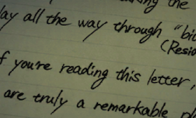 the
ay all the way through "bi
(Resi
f you're reading this letter,
are truly a remarkable